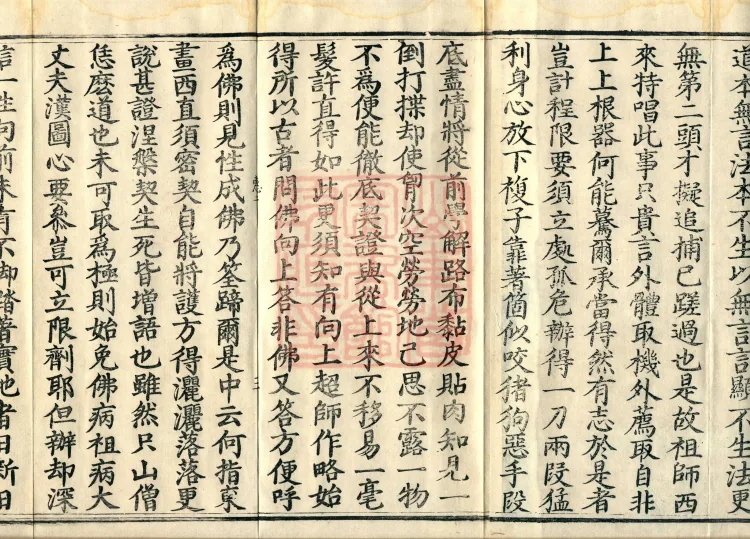 道本無言法本不生以無言言顯不生法更
無第二頭才擬追捕已蹉過也是故祖師西
來特唱此事只貴言外體取機外薦取自非
上上根器何能驀爾承當得然有志於是者
豈計程限要須立處孤危辦得一刀兩段猛
利身心放下複子靠著箇似咬猪狗惡手段
底盡情將從前學解路布黏皮貼肉知見一
倒打揲却使胷次空勞勞地己思不露一物
不爲便能徹底契證與從上來不移易一毫
髮許直得如此更須知有向上超師作略始
得所以古者問佛向上答非佛又答方便呼
爲佛則見性成佛乃筌蹄爾是中云何指東
畫西直須密契自能將護方得灑灑落落更
說甚證涅槃契生死皆增語也雖然只山僧
恁麽道也未可取爲極則始免佛病祖病大
丈夫漢圖心要叅豈可立限劑耶但辦却深
信一性向前未有不脚踏著實地者日新日